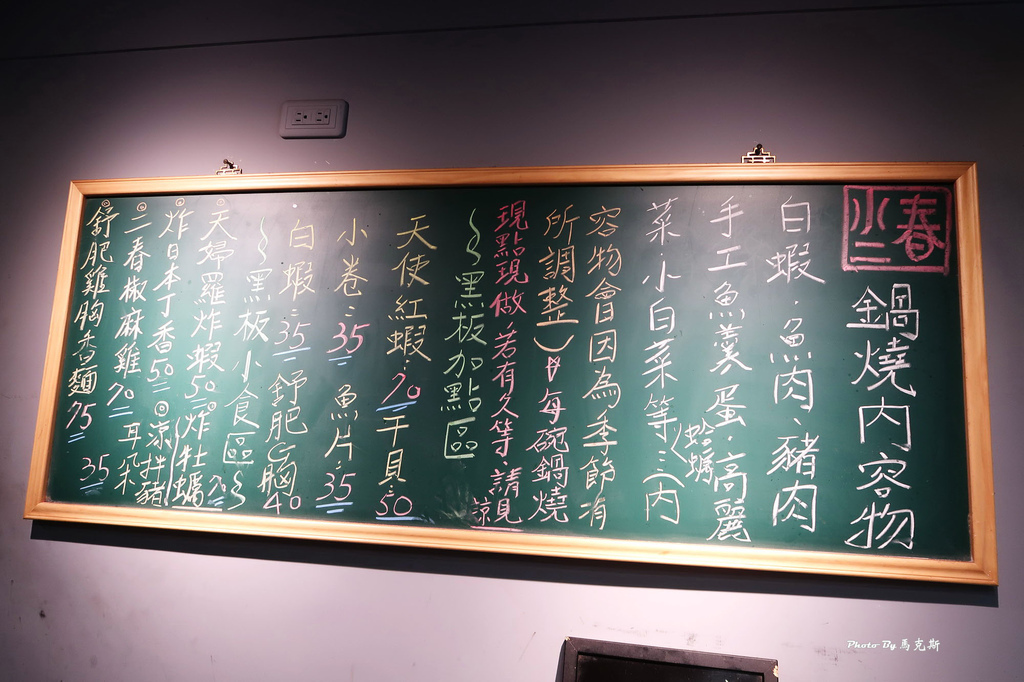 小二
春
鍋燒內容物
白蝦、魚肉、豬肉
手工魚羹、蛋、高麗
蛤蠣
菜、小白菜等…(內
容物會因為季節有
所調整)每碗鍋燒
現點現做,若有久等,請見
諒
~黑板加點區
天使紅蝦:70 干貝:50
小卷:35 魚片:35
白蝦:35 舒肥G胸40
~黑板小食區~
◎天婦羅炸蝦50 ◎炸牡蠣70
◎炸日本丁香50 ◎涼拌豬
耳朵35
◎二春椒麻雞70
◎舒肥雞胸香麵75
Photo By 馬克斯